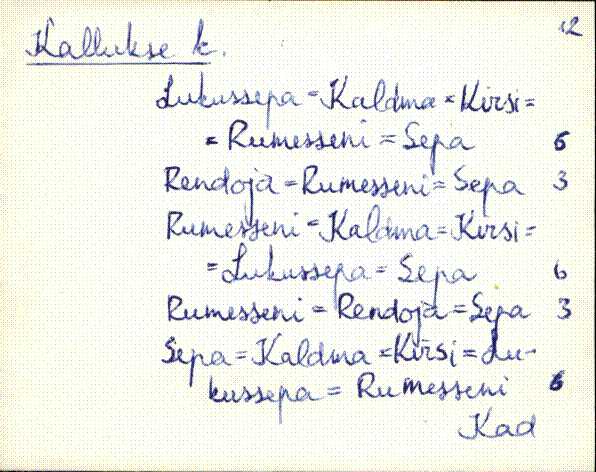 12
Kallukse k.
Lukussepa = Kaldma = Kirsi =
= Rumesseni = Sepa 6
Rendoja = Rumesseni = Sepa 3
Rumesseni = Kaldma = Kirsi =
= Lukussepa = Sepa 6
Rumesseni = Rendoja = Sepa 3
Sepa = Kaldma = Kirsi = Lu-
kussepa = Rumesseni 6
Kad